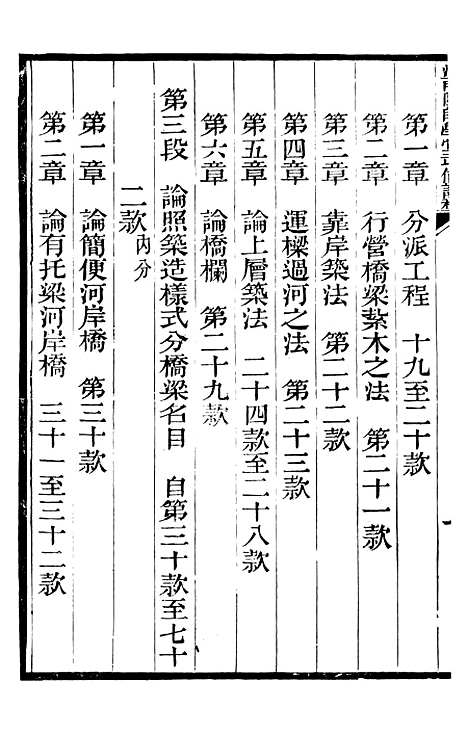 第一章　分派工程　十九至二十款
第二章　行營橋梁紮木之法　第二十一款
第三章　靠岸築法　第二十二款
第四章　運樑過河之法　第二十三款
第五章　論上層築法　二十四款至二十八款
第六章　論橋欄　第二十九款
第三段　論照築造樣式分橋梁名目　自第三十款至七十
二款內分
第一章　論簡便河岸橋　第三十款
第二章　論有托梁河岸橋　三十一至三十二款